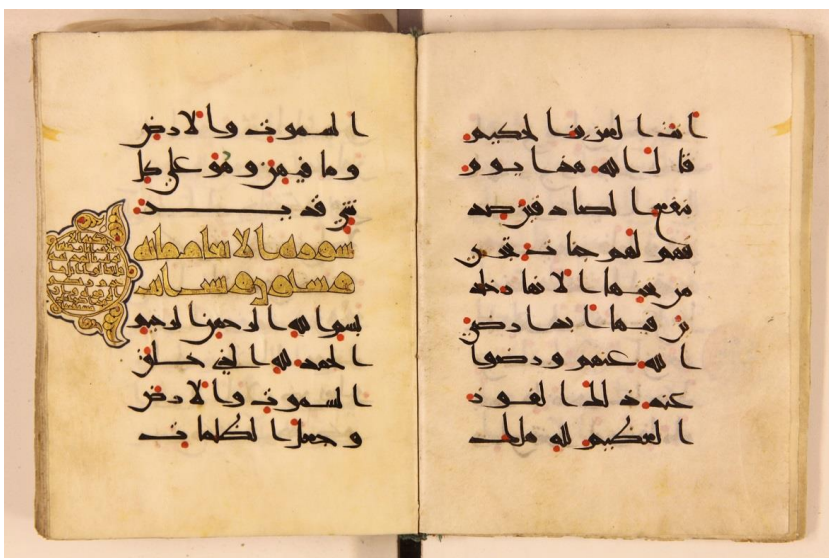 انت العزيز الحكيم
قال الله هذا يوم
ينفع الصادقين صد
قهم لهم جنات تجري
من تحتها الانهار خلد
ين فيها ابدا رضي
الله عنهم ورضوا
عنه ذلك الفوز
العظيم لله ملك
السموت والارض
وما فيهن وهو على كل
شي قدير
سورة الانعام مائة
بسم الله الرحمن الرحيم
الحمد لله الذي خلق
السموت والارض
وجعل الظلمات